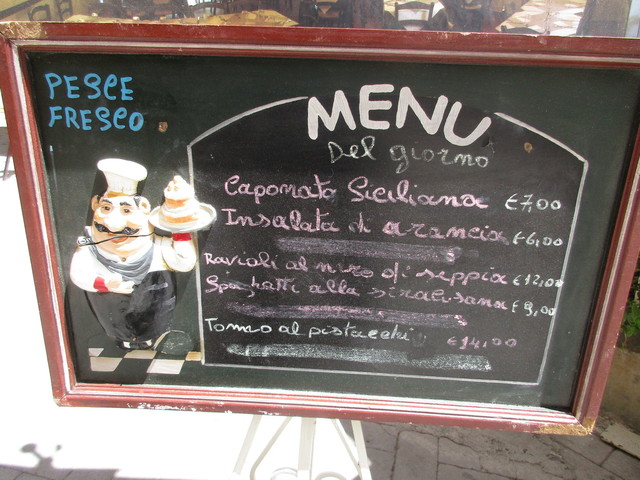 PESCE
FRESCO
MENU
Del giorno
Caponata Siciliana €7,00
Insalata di arancia €6,00
Ravioli al nero di seppia €12,00
Spaghetti alla siracusana €9,00
Tonno al pistacchi €14,00